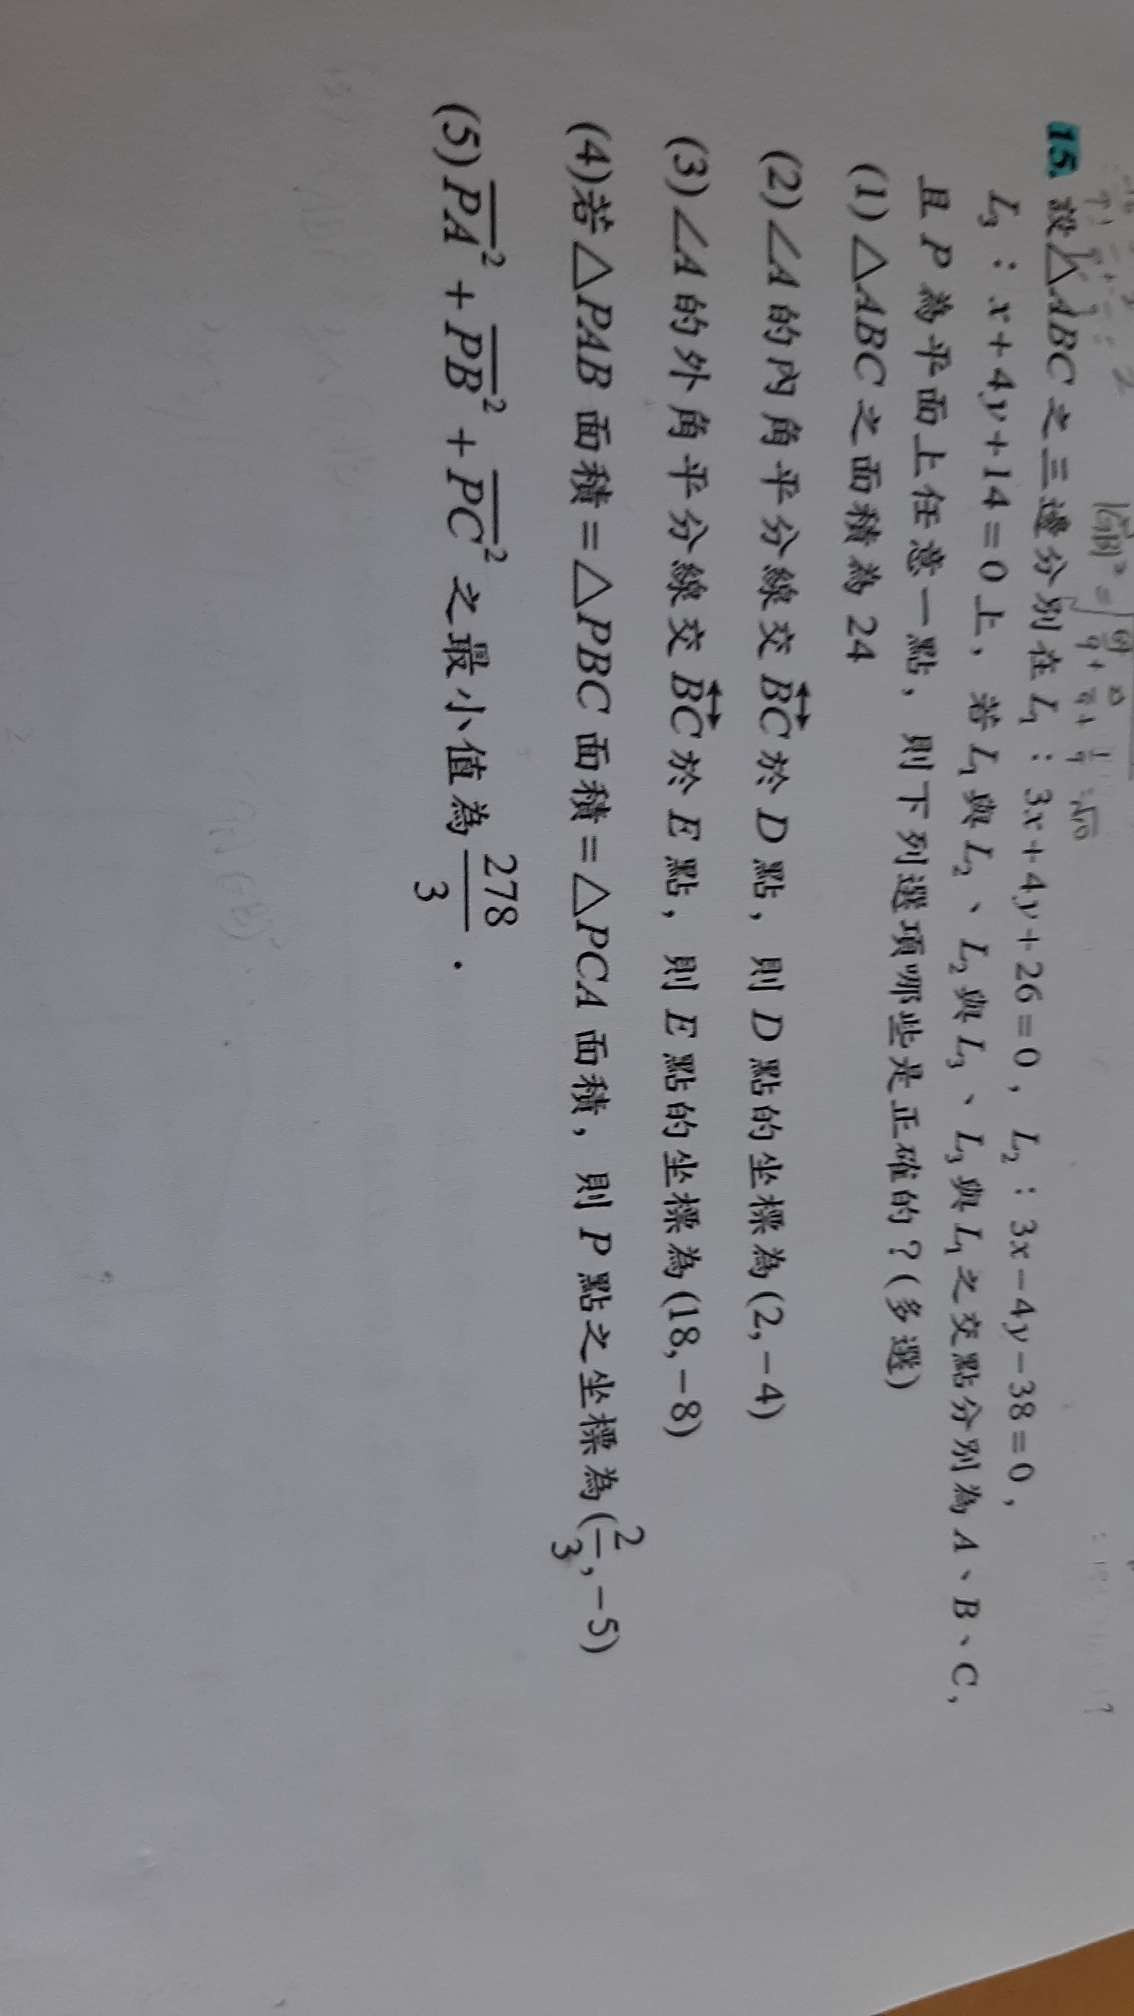 15. 設△ABC之三邊分別在L₁：3x+4y+26=0，L₂：3x−4y−38=0，
L₃：x+4y+14=0上，若L₁與L₂、L₂與L₃、L₃與L₁之交點分別為A、B、C，
且P為平面上任意一點，則下列選項哪些是正確的？(多選)
(1)△ABC之面積為24
(2)∠A的內角平分線交\overleftrightarrow{BC}於D點，則D點的坐標為(2,−4)
(3)∠A的外角平分線交\overleftrightarrow{BC}於E點，則E點的坐標為(18,−8)
(4)若△PAB面積=△PBC面積=△PCA面積，則P點之坐標為(\frac{2}{3},−5)
(5)\overline{PA}²+\overline{PB}²+\overline{PC}²之最小值為\frac{278}{3}．